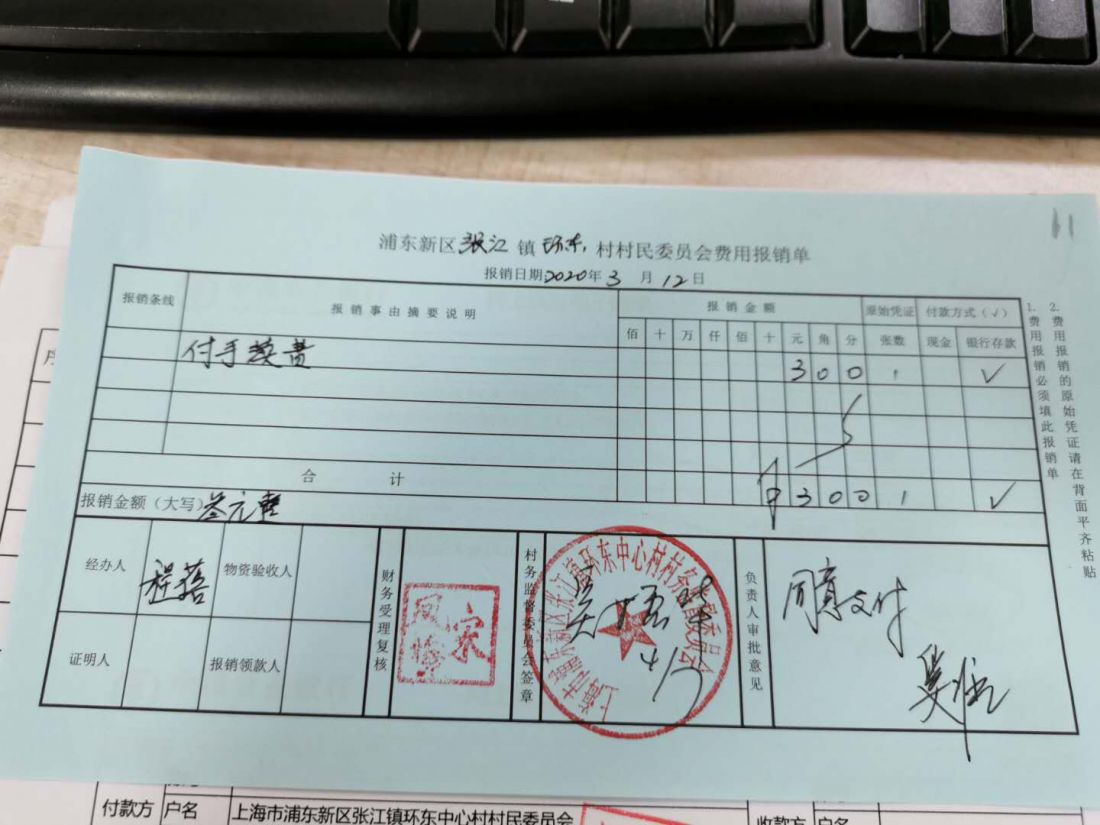 浦东新区张江镇环东村村民委员会费用报销单
报销日期2020年3月12日
报销条线 报销事由摘要说明 报销金额 原始凭证 付款方式(√)
佰 十 万 仟 佰 十 元 角 分 张数 现金 银行存款
付手续费 3 0 0 1 √
合计 ¥ 3 0 0 1 √
报销金额(大写)叁元整
经办人 程蓓 物资验收人
证明人 报销领款人
财务受理复核
村务监督委员会签章
上海市浦东新区张江镇环东中心村村务监督委员会
4/7
负责人审批意见
同意支付
1.费用报销必须填此报销单
2.费用报销的原始凭证请在背面平齐粘贴
付款方 户名 上海市浦东新区张江镇环东中心村村民委员会 收款方 户名